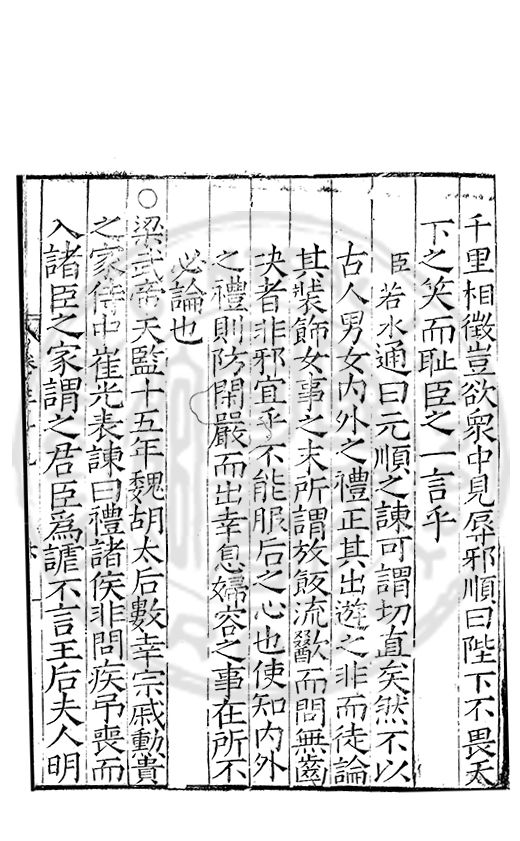 千里相徵豈欲衆中見辱邪順曰陛下不畏天
下之笑而耻臣之一言乎
臣若水通曰元順之諫可謂切直矣然不以
古人男女内外之禮正其出遊之非而徒論
其裝飾女事之末所謂放飯流歠而問無齒
决者非邪宜乎不能服后之心也使知内外
之禮則防閑嚴而出幸息婦容之事在所不
必論也
○梁武帝天監十五年魏胡太后數幸宗戚勳貴
之家侍中崔光表諫曰禮諸侯非問疾弔喪而
入諸臣之家謂之君臣爲謔不言王后夫人明